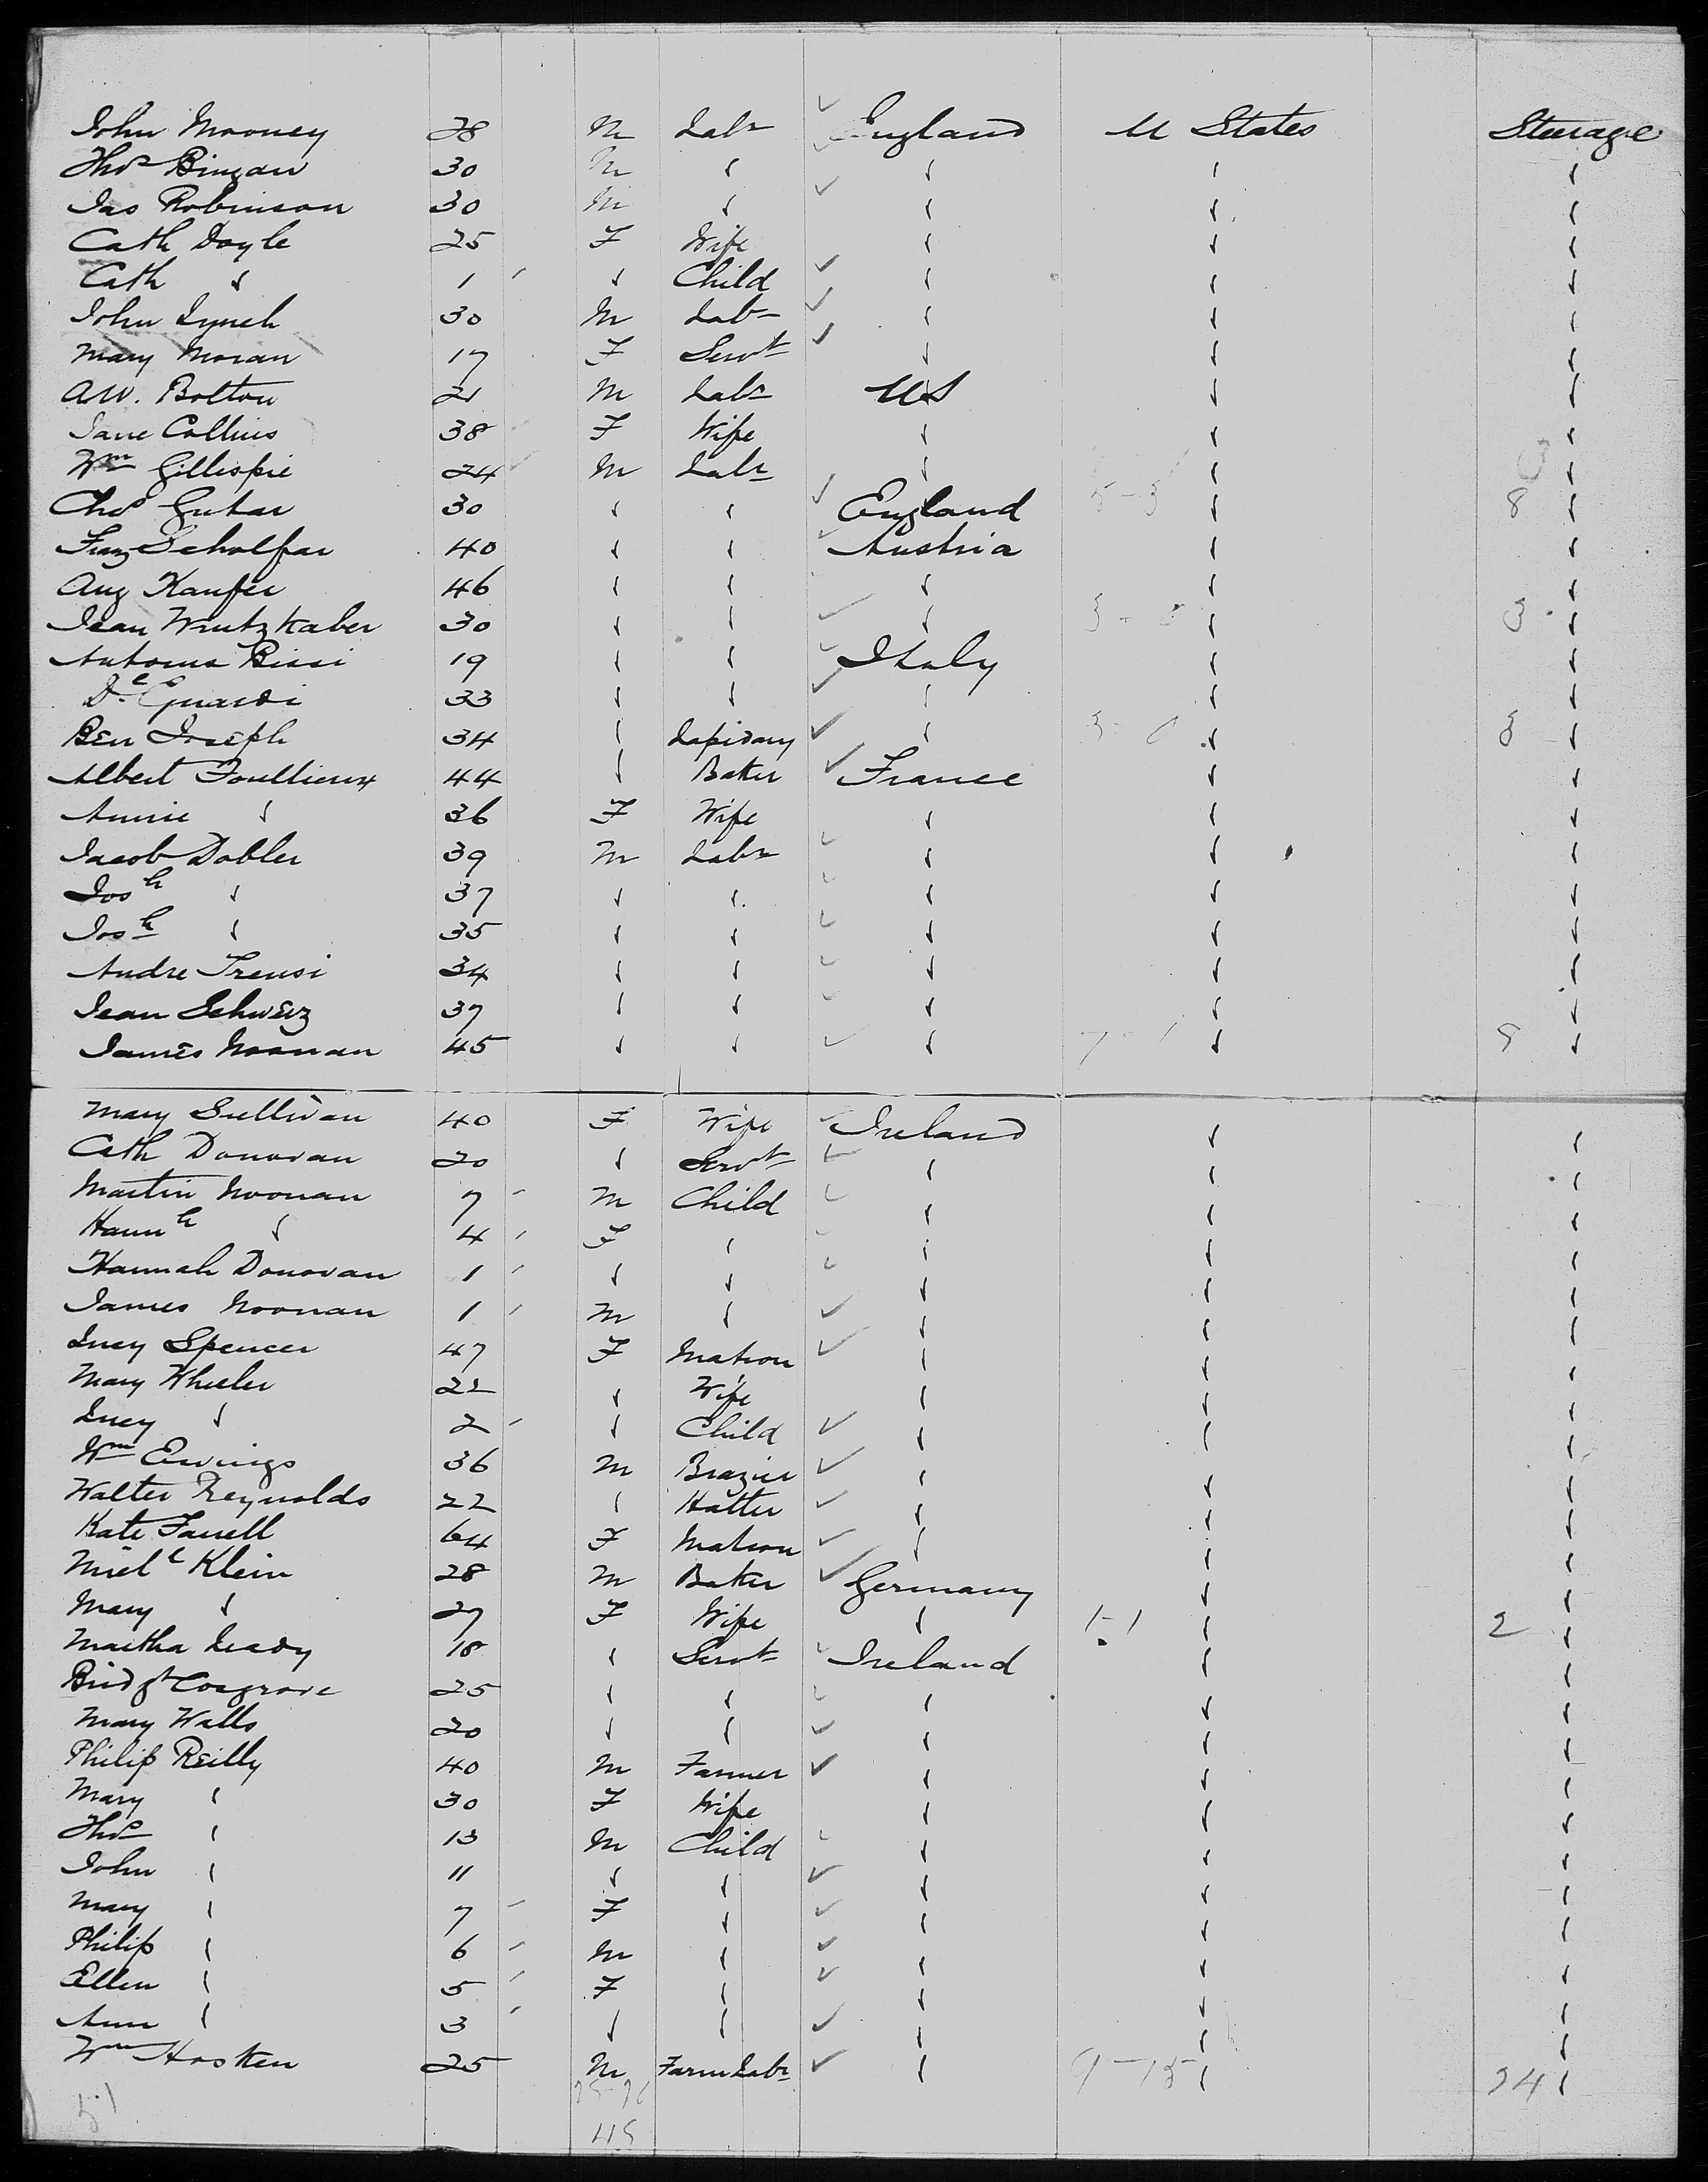 John Mooney 28 M Labr England U States Steerage
Thos Bingan 30 M " " " "
Jas Robinson 30 M " " " "
Cath Doyle 25 F Wife " " "
Cath " 1 " Child " " "
John Lynch 30 M Labr " " "
Mary Moran 17 F Servt " " "
A.W. Bolton 21 M Labr US " "
Jane Collins 38 F Wife " " "
Wm Gillespie 24 M Labr " " "
Chas Gutar 30 " " England 5-3 " 8 "
Franz Scholfar 40 " " Austria " "
Aug Kaufer 46 " " " " "
Jean Wrutzkaber 30 " " " " 3 "
Antonia Bissi 19 " " Italy " "
De Gnardi 33 " " " " "
Ben Joseph 34 " Lapidary " 3-0 " 3 "
Albert Foullieux 44 " Baker France " "
Annie " 36 F Wife " " "
Jacob Dobler 39 M Labr " " "
Josh " 37 " " " " "
Josh " 35 " " " " "
Andre Trensi 34 " " " " "
Jean Schweiz 37 " " " " "
James Noonan 45 " " " " "
Mary Sullivan 40 F Wife Ireland " "
Cath Donovan 20 " Servt " " "
Martin Noonan 7 M Child " " "
Hannh " 4 F " " " "
Hannah Donovan 1 " " " " "
James Noonan 1 M " " " "
Lucy Spencer 47 F Matron " " "
Mary Wheeler 22 " Wife " " "
Lucy " 2 " Child " " "
Wm Ewings 36 M Brazier " " "
Walter Reynolds 22 " Hatter " " "
Kate Farrell 64 F Matron " " "
Michl Klein 28 M Baker Germany " "
Mary " 27 F Wife " 1-1 " 2 "
Martha Leady 18 " Servt Ireland " "
Bridgt Cosgrove 25 " " " " "
Mary Walls 20 " " " " "
Philip Reilly 40 M Farmer " " "
Mary " 30 F Wife " " "
Thos " 13 M Child " " "
John " 11 " " " " "
Mary " 7 F " " " "
Philip " 6 M " " " "
Ellen " 5 F " " " "
Ann " 3 " " " " "
Wm Hosken 25 M Farm Labr " 9-15 " 24 "
51